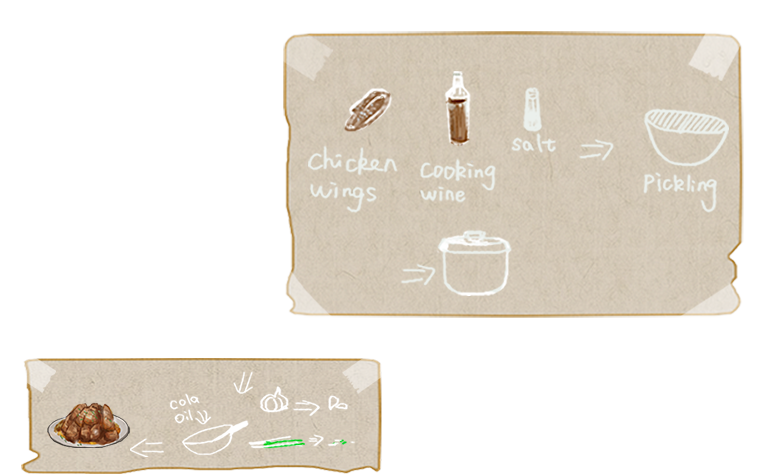 Chicken
wings
cooking
wine
salt
Pickling
cola
oil